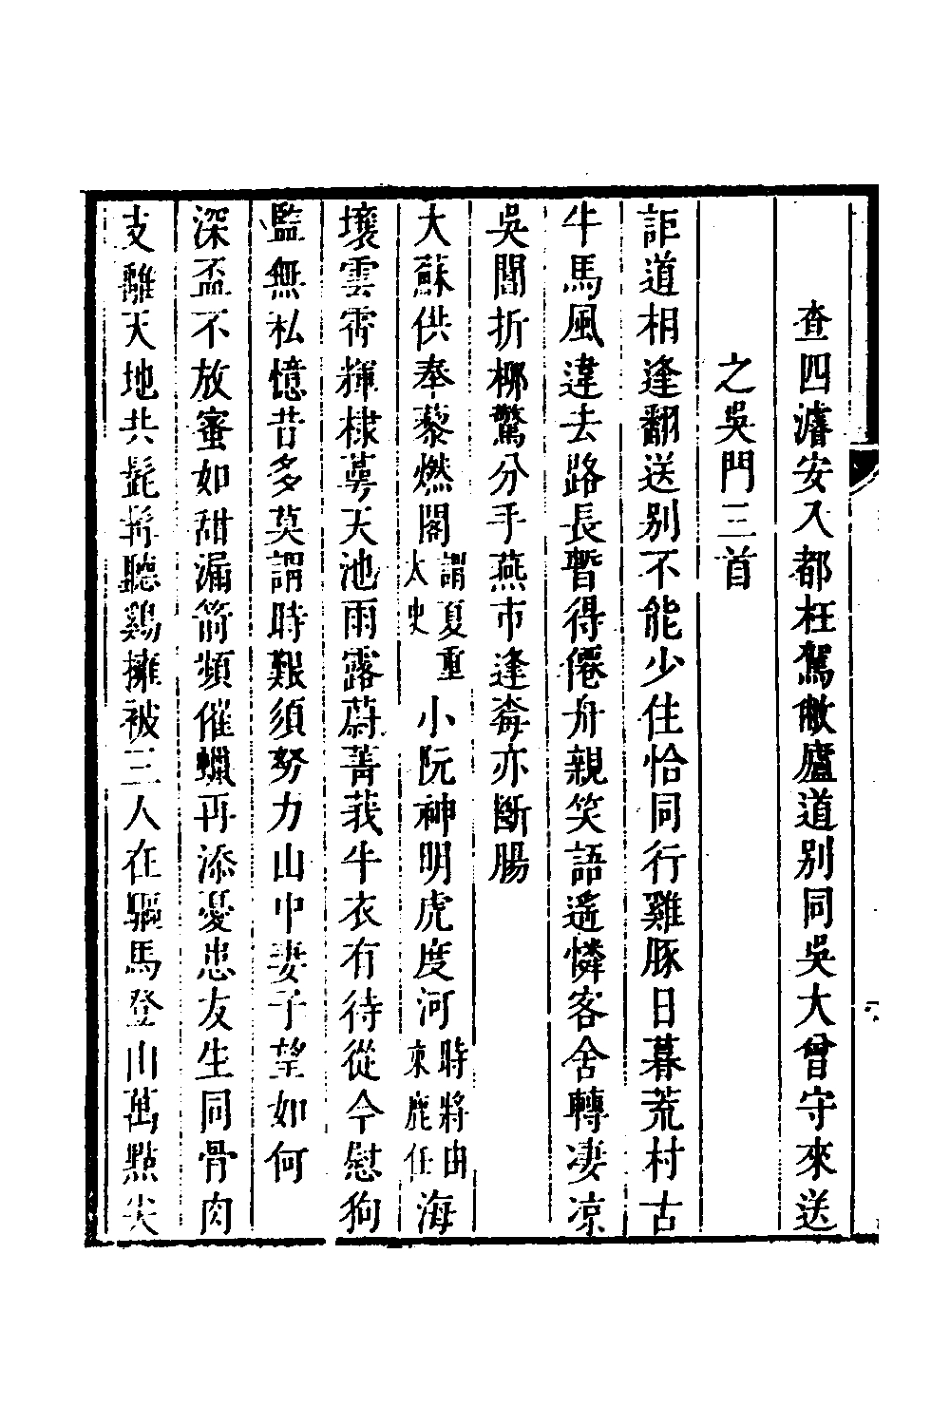 查四濬安入都枉駕敝廬道别同吳大曾守來送
之吳門三首
詎道相逢翻送别不能少住恰同行雞豚日暮荒村古
牛馬風違去路長暫得僊舟親笑語遥憐客舍轉凄凉
吳閶折桞驚分手燕市逢毎亦斷腸
大蘇供奉藜燃閣謂夏重太史小阮神明虎度河時將由來鹿任海
壤雲霄輝棣萼天池雨露蔚菁莪牛衣有待從今慰狗
監無私憶昔多莫謂時艱須努力山中妻子望如何
深盃不放蜜如甜漏箭頻催蠟再添憂患友生同骨肉
支離天地共髭髯聽鷄擁被三人在驅馬登山萬點尖